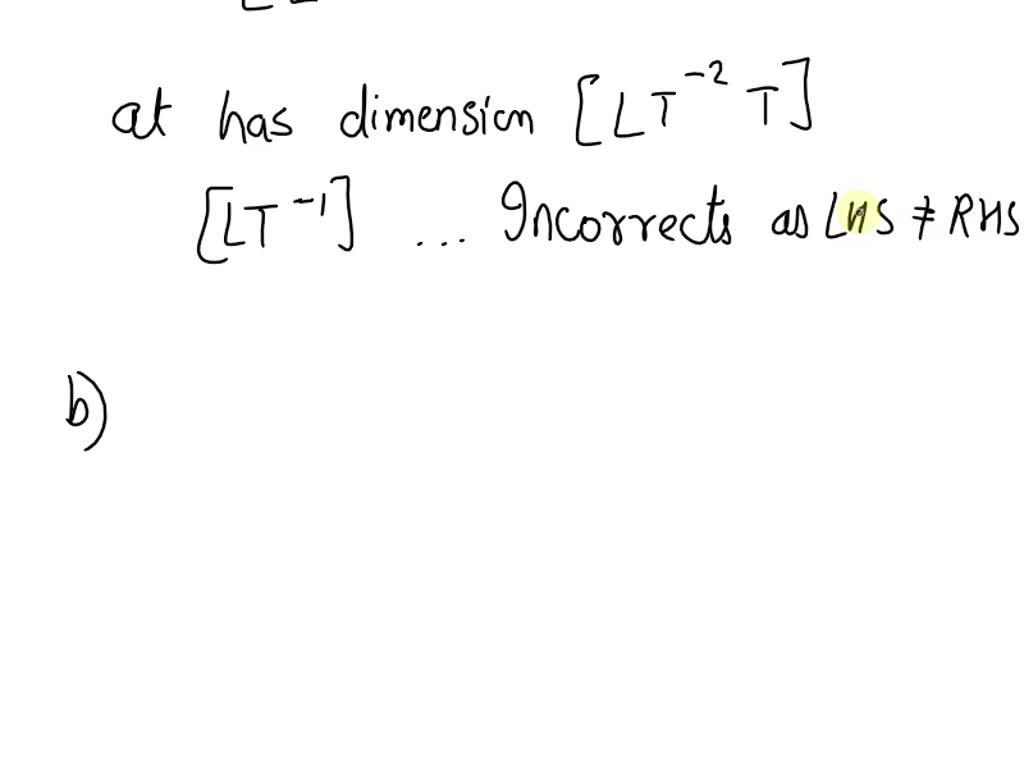 at has dimension [LT⁻² T]
[LT⁻¹] ... Incorrects as LHS ≠ RHS
b)